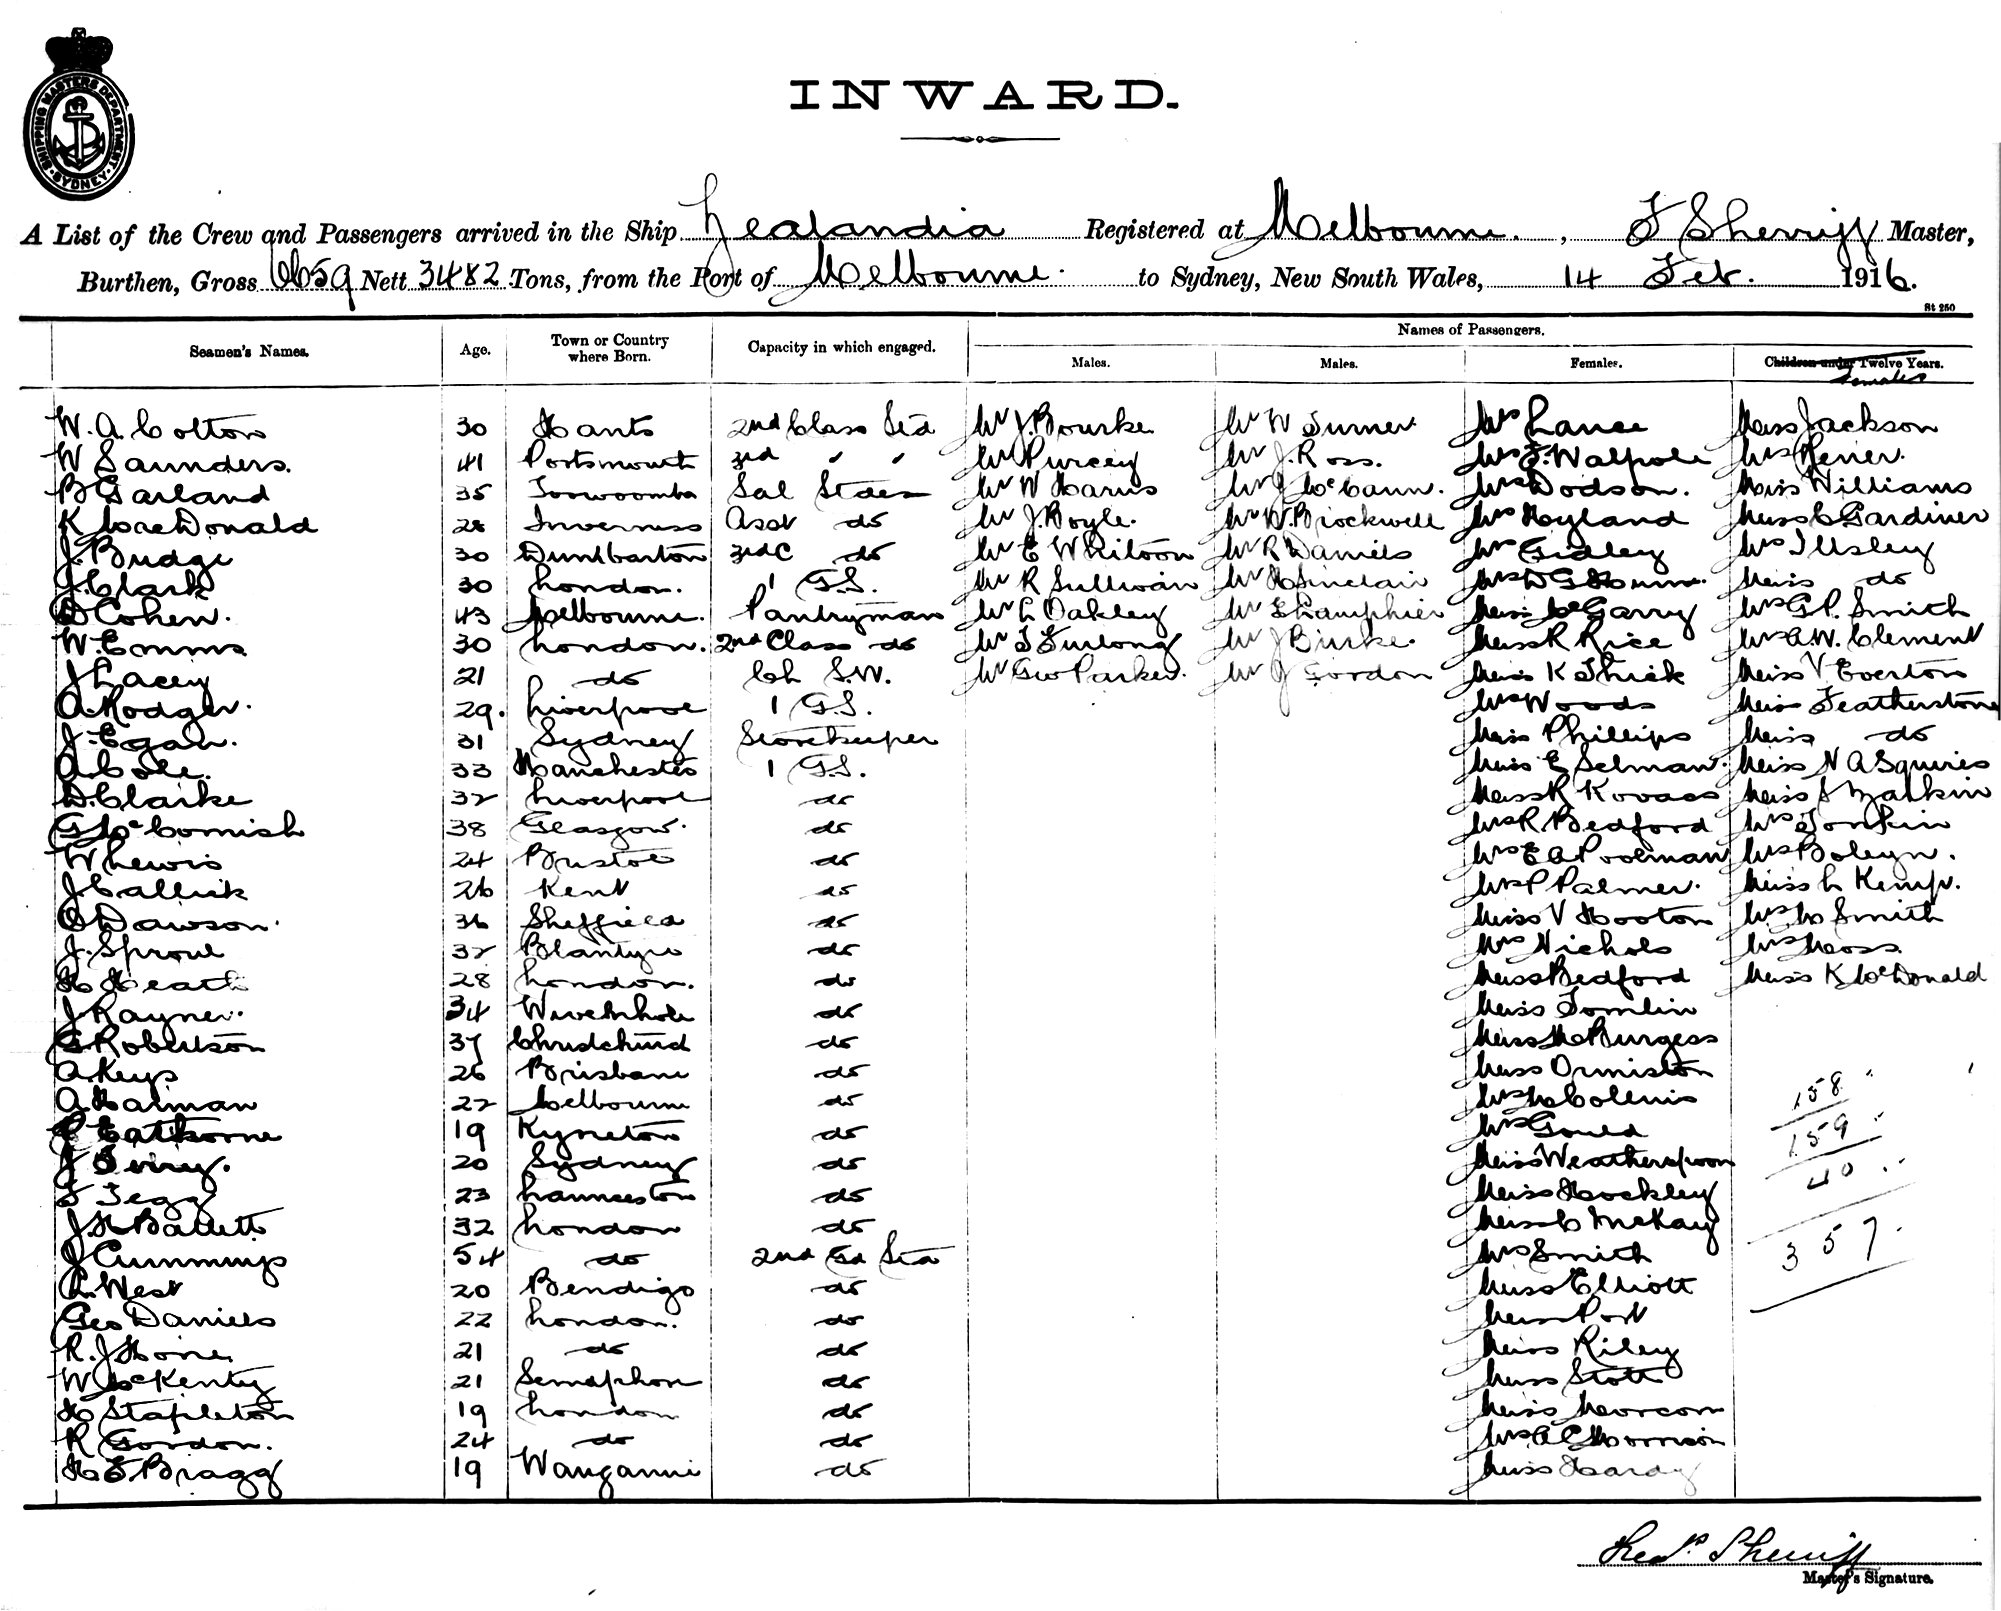 SHIPPING MASTERS DEPARTMENT SYDNEY
INWARD.
A List of the Crew and Passengers arrived in the Ship Zealandia Registered at Melbourne. , F Sherriff Master,
Burthen, Gross 6659 Nett 3482 Tons, from the Port of Melbourne. to Sydney, New South Wales, 14 Feb. 1916.
St 250
Seamen's Names. Age. Town or Country where Born. Capacity in which engaged. Names of Passengers.
Males. Males. Females. Children under Twelve Years.
Females
W. A. Colton 30 Hants 2nd Class Std Mr J. Bourke Mr W Turner Mrs Lance Miss Jackson
W Saunders. 41 Portsmouth 3rd " " Mr Purcey Mr J. Ross. Mrs F. Walpole Mrs Rener.
B Garland 35 Toowoomba Sal Stdes Mr W Harris Mr J McCann. Mrs Dodson. Miss Williams
K MacDonald 28 Inverness Asst do Mr J. Boyle. Mr W. Brockwell Mrs Hyland Miss C Gardiner
J. Budge 30 Dumbarton 3rd C do Mr E Whitoon Mr R Daniels Mrs Gidley Mrs Illsley
J. Clark 30 London. 1 G.S. Mr R Sullivan Mr H Sinclair Mrs D G Hume. Miss do
D Cohen. 43 Melbourne. Pantryman Mr L Oakley Mr Lhamphier Miss McGarry Mrs G. P. Smith
W. Emms 30 London. 2nd Class do Mr T Furlong Mr J Burke. Miss R Rice Mrs A. W. Clement
J Lacey 21 do Ch S.W. Mr Geo Parker. Mr J Gordon Miss K Thick Miss V Everton
A. Rodger. 29. Liverpool 1 G.S. Mrs Woods Miss Featherstone
J. Egan. 31 Sydney Storekeeper Miss Phillips Miss do
A. Cole. 33 Manchester 1 G.S. Miss E Selman. Miss N A Squires
D. Clarke 32 Liverpool do Miss R Kovacs Miss S Malkin
G McCornish 38 Glasgow. do Mrs R. Bedford Mrs Tonkin
W Lewis 24 Bristol do Mrs E A Poolman Mrs Boleyn.
J Callick 26 Kent do Mrs P Palmer. Miss L Kemp.
C Dawson. 36 Sheffield do Miss V Hooton Mrs M Smith
J. Sproul 32 Blantyre do Mrs Nichols Mrs Moss.
H Heath 28 London. do Miss Bedford Miss K McDonald
J. Rayner. 34 Wivenhoe do Miss Tomlin
G Robertson 37 Christchurch do Miss M Burgess
A. Keys 26 Brisbane do Miss Ormiston
A Halman 22 Melbourne do Mrs M Collins
C Eathorne 19 Kyneton do Mrs Gould
J Terry. 20 Sydney do Miss Weatherspoon
F Tegg 23 Launceston do Miss Hockley
J H Ballett 32 London do Miss C McKay
J Cummings 54 do 2nd Gd Std Mrs Smith
A. West 20 Bendigo do Miss Elliott
Geo Daniels 22 London. do Miss Port
R. J Hone. 21 do do Miss Riley
W McKenty 21 Semaphore do Miss Stott
H Stapleton 19 London do Miss Morcom
R Gordon. 24 do do Mrs A C Morrison
H E Bragg 19 Wanganui do Miss Hardy
158
159
40
357
Fredk Sherriff
Master's Signature.